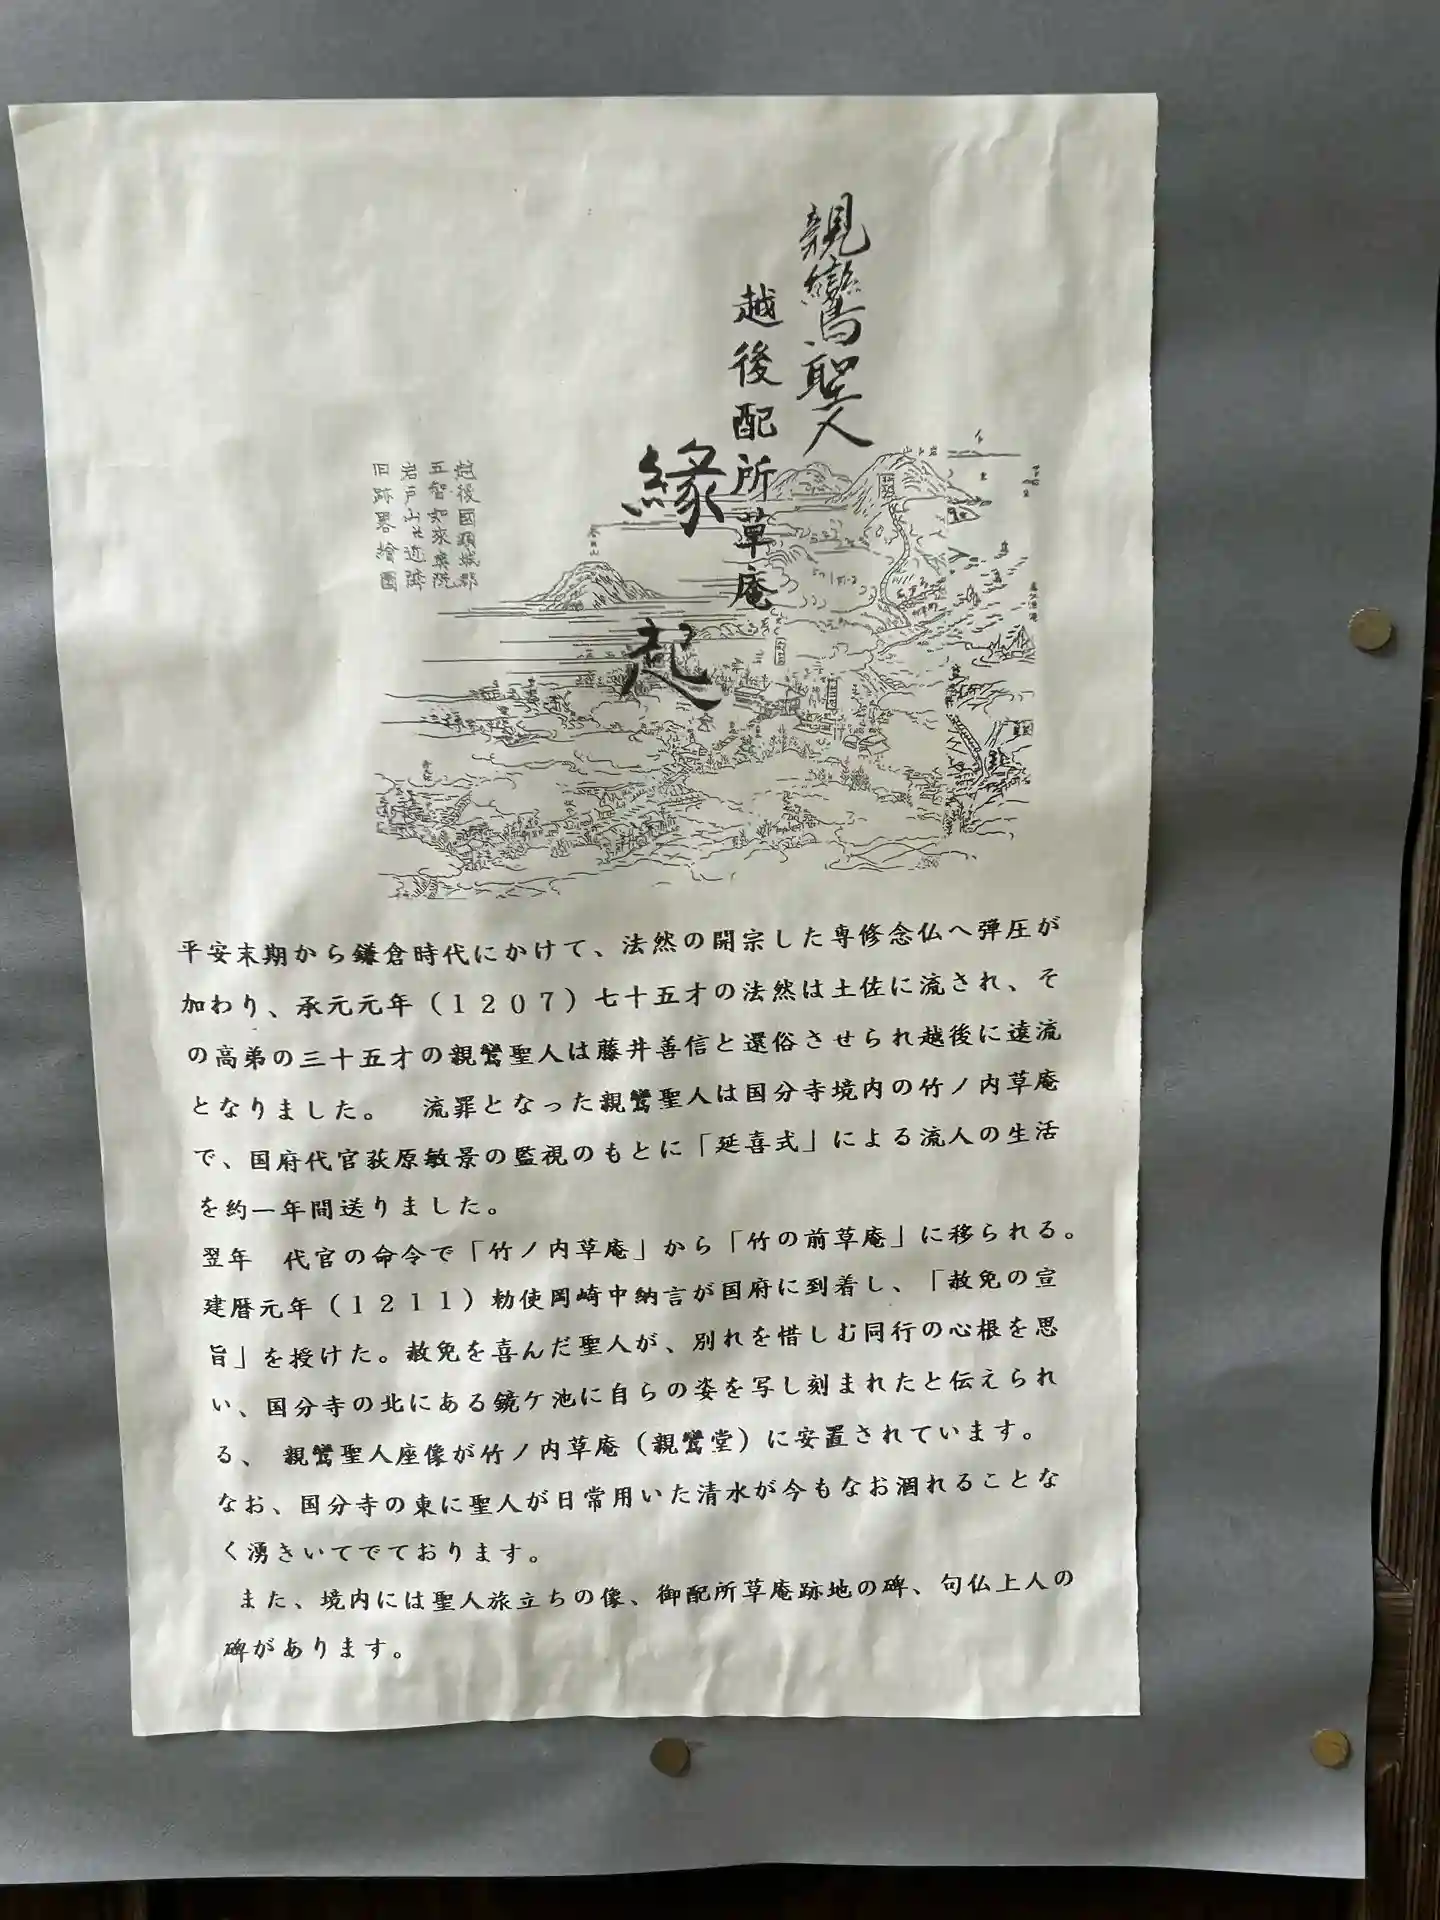 親鸞聖人
越後配所草庵
縁起
越後國頸城郡
五智如來楽院
岩戸山其近隣
旧跡畧繪圖
春日山
平安末期から鎌倉時代にかけて、法然の開宗した専修念仏へ弾圧が
加わり、承元元年（１２０７）七十五才の法然は土佐に流され、そ
の高弟の三十五才の親鸞聖人は藤井善信と還俗させられ越後に遠流
となりました。　流罪となった親鸞聖人は国分寺境内の竹ノ内草庵
で、国府代官荻原敏景の監視のもとに「延喜式」による流人の生活
を約一年間送りました。
翌年　代官の命令で「竹ノ内草庵」から「竹の前草庵」に移られる。
建暦元年（１２１１）勅使岡崎中納言が国府に到着し、「赦免の宣
旨」を授けた。赦免を喜んだ聖人が、別れを惜しむ同行の心根を思
い、国分寺の北にある鏡ケ池に自らの姿を写し刻まれたと伝えられ
る、　親鸞聖人座像が竹ノ内草庵（親鸞堂）に安置されています。
なお、国分寺の東に聖人が日常用いた清水が今もなお涸れることな
く湧きいてでております。
また、境内には聖人旅立ちの像、御配所草庵跡地の碑、句仏上人の
碑があります。